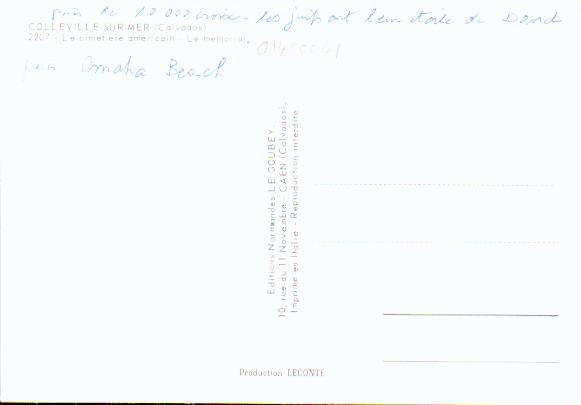 près de 10 000 croix - les juifs ont leur étoile de David
COLLEVILLE-SUR-MER (Calvados)
2207 - Le cimetière américain - Le mémorial.
près Omaha Beach
Editions Normandes LE GOUBEY
10, rue du 11 Novembre - CAEN (Calvados).
Imprimé en Italie - Reproduction interdite.
Production LECONTE